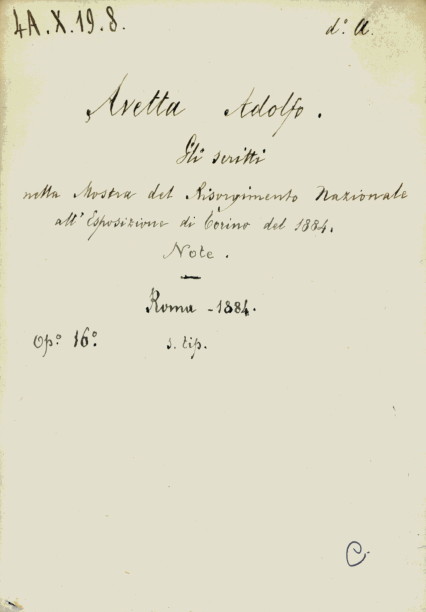 4A.X.19.8.
d.º A.
Avetta Adolfo.
Gli scritti
nella Mostra del Risorgimento Nazionale
all'Esposizione di Torino del 1884.
Note.
Roma - 1884.
Op.º 16.º s. tip.
C.